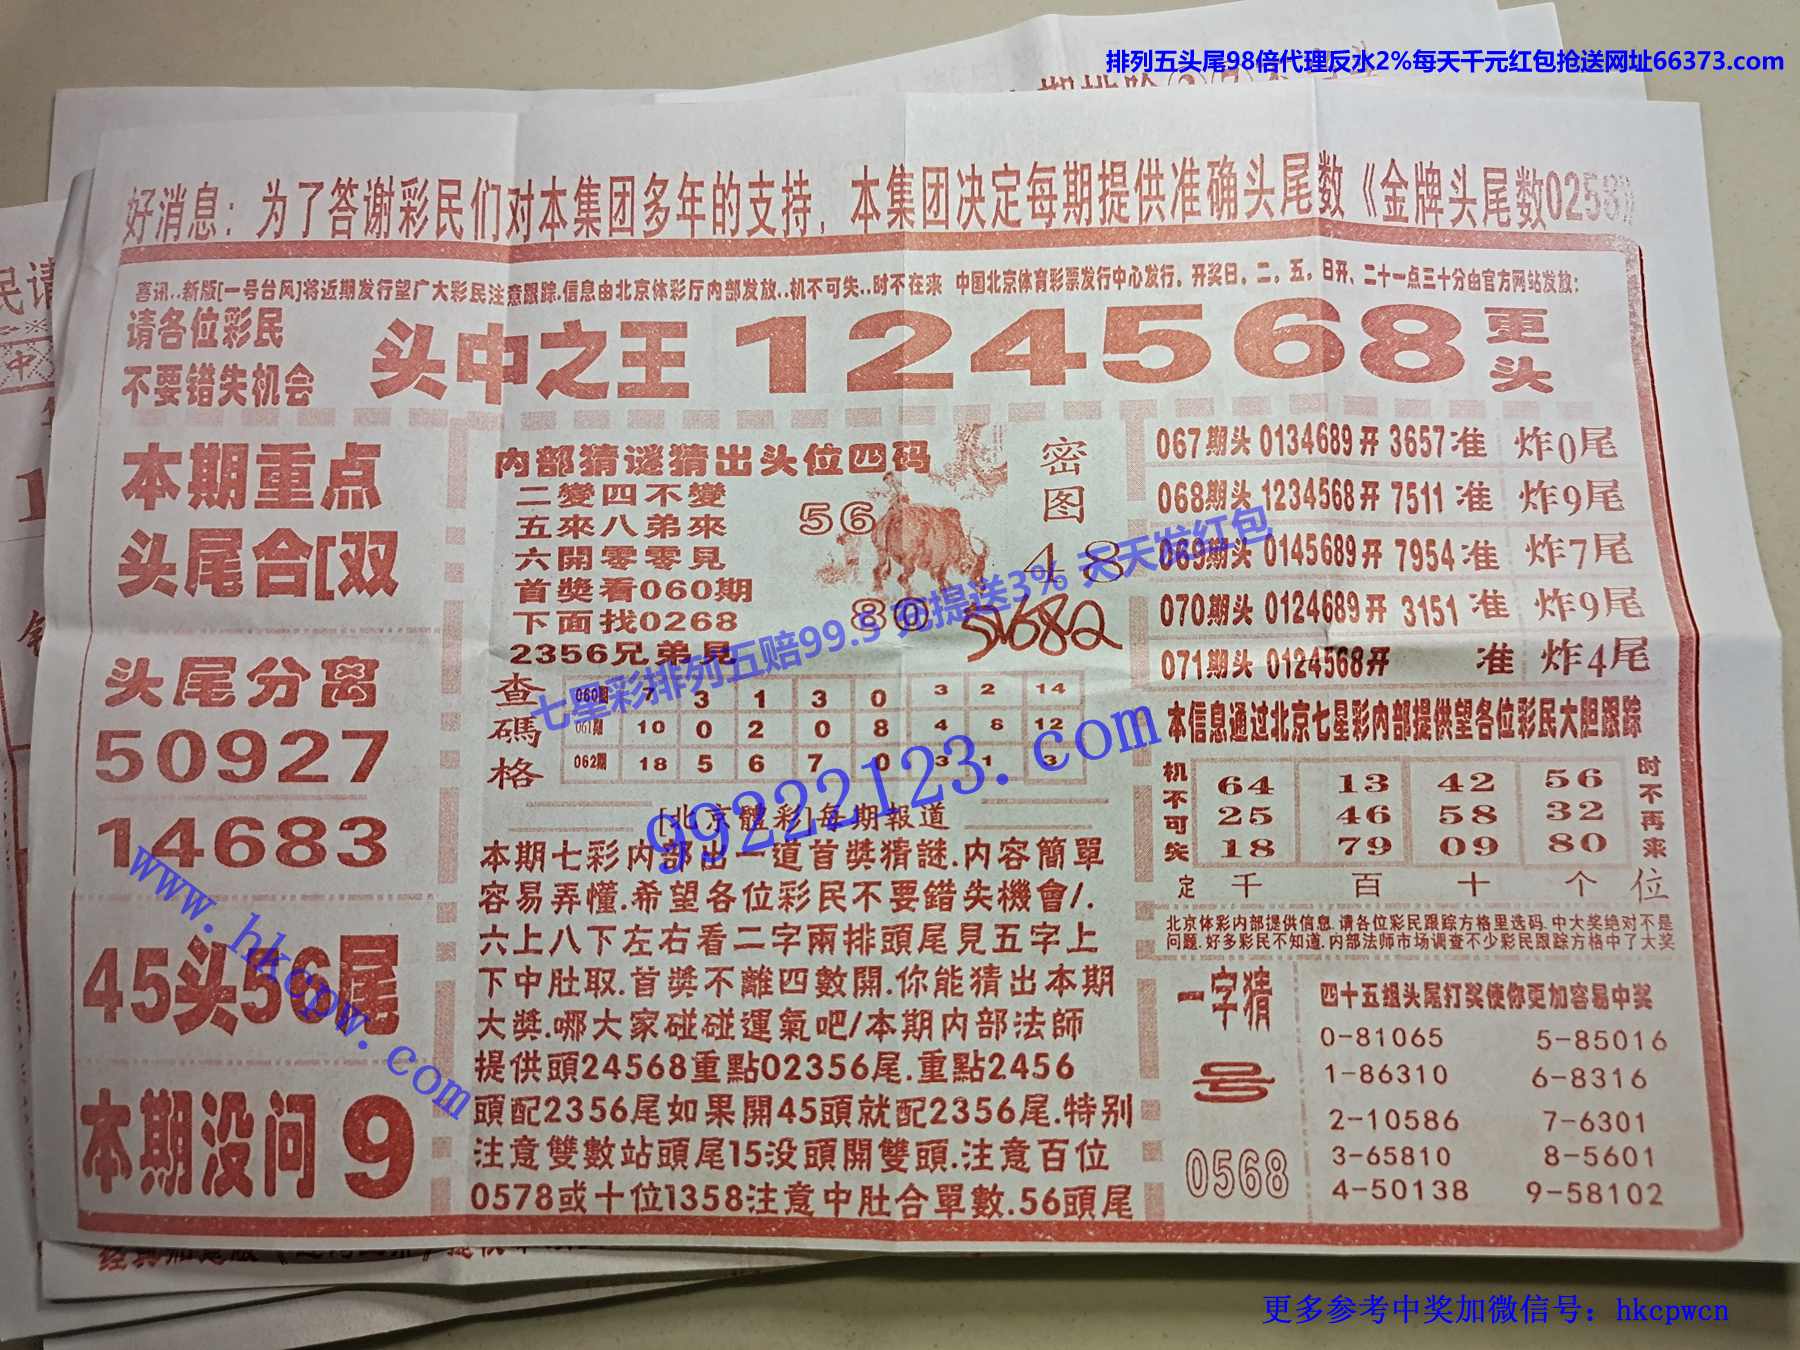 排列五头尾98倍代理反水2%每天千元红包抢送网址66373.com
好消息：为了答谢彩民们对本集团多年的支持，本集团决定每期提供准确头尾数《金牌头尾数0258》
喜讯..新版[一号台风]将近期发行望广大彩民注意跟踪.信息由北京体彩厅内部发放..机不可失..时不在来 中国北京体育彩票发行中心发行，开奖日，二，五，日开、二十一点三十分由官方网站发放；
请各位彩民
不要错失机会
头中之王 124568 更头
本期重点
头尾合[双
头尾分离
50927
14683
45头56尾
本期没问 9
内部猜谜猜出头位四码
二變四不變
五來八弟來
六開零零見
首獎看060期
下面找0268
2356兄弟見
密图
56
48
80
51682
查碼格
060期 7 3 1 3 0 3 2 14
061期 10 0 2 0 8 4 6 12
062期 18 5 6 7 0 3 1 3
[北京體彩]每期報道
本期七彩内部出一道首獎猜謎.内容簡單
容易弄懂.希望各位彩民不要錯失機會/.
六上八下左右看二字兩排頭尾見五字上
下中肚取.首獎不離四數開.你能猜出本期
大獎.哪大家碰碰運氣吧/本期内部法師
提供頭24568重點02356尾.重點2456
頭配2356尾如果開45頭就配2356尾.特别
注意雙數站頭尾15没頭開雙頭.注意百位
0578或十位1358注意中肚合單數.56頭尾
067期头 0134689开 3657准 炸0尾
068期头 1234568开 7511准 炸9尾
069期头 0145689开 7954准 炸7尾
070期头 0124689开 3151准 炸9尾
071期头 0124568开 准 炸4尾
本信息通过北京七星彩内部提供望各位彩民大胆跟踪
机不可失
64 13 42 56
25 46 58 32
18 79 09 80
时不再来
定 千 百 十 个 位
北京体彩内部提供信息.请各位彩民跟踪方格里选码.中大奖绝对不是
问题.好多彩民不知道.内部法师市场调查不少彩民跟踪方格中了大奖
一字猜
号
0568
四十五组头尾打奖使你更加容易中奖
0-81065 5-85016
1-86310 6-8316
2-10586 7-6301
3-65810 8-5601
4-50138 9-58102
七星彩排列五赔99.5 充提送3% 天天发红包
99222123.com
www.hkcpw.com
更多参考中奖加微信号：hkcpwcn